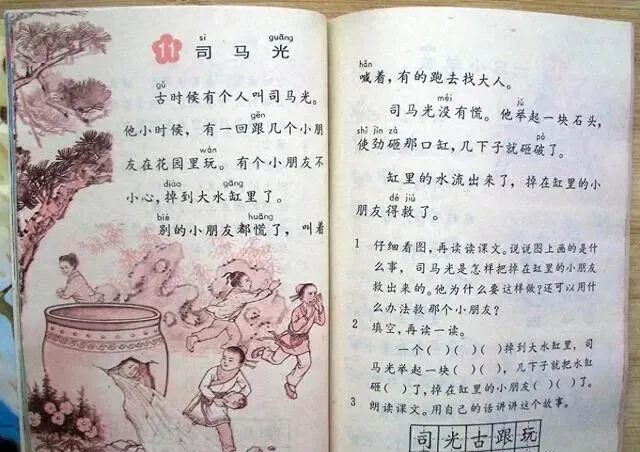 11 sī guāng
司马光
gǔ
古时候有个人叫司马光。
gēn
他小时候，有一回跟几个小朋
wán
友在花园里玩。有个小朋友不
diào gāng
小心，掉到大水缸里了。
bié huāng
别的小朋友都慌了，叫着
hǎn
喊着，有的跑去找大人。
méi jǔ
司马光没有慌。他举起一块石头，
shǐ jìn zá pò
使劲砸那口缸，几下子就砸破了。
缸里的水流出来了，掉在缸里的小
dé jiù
朋友得救了。
1 仔细看图，再读读课文。说说图上画的是什
么事，司马光是怎样把掉在缸里的小朋友
救出来的。他为什么要这样做？还可以用什
么办法救那个小朋友？
2 填空，再读一读。
一个( )( )( )掉到大水缸里，司
马光举起一块( )( )，几下子就把水缸
砸( )了，掉在缸里的小朋友( )( )了。
3 朗读课文。用自己的话讲讲这个故事。
司光古跟玩